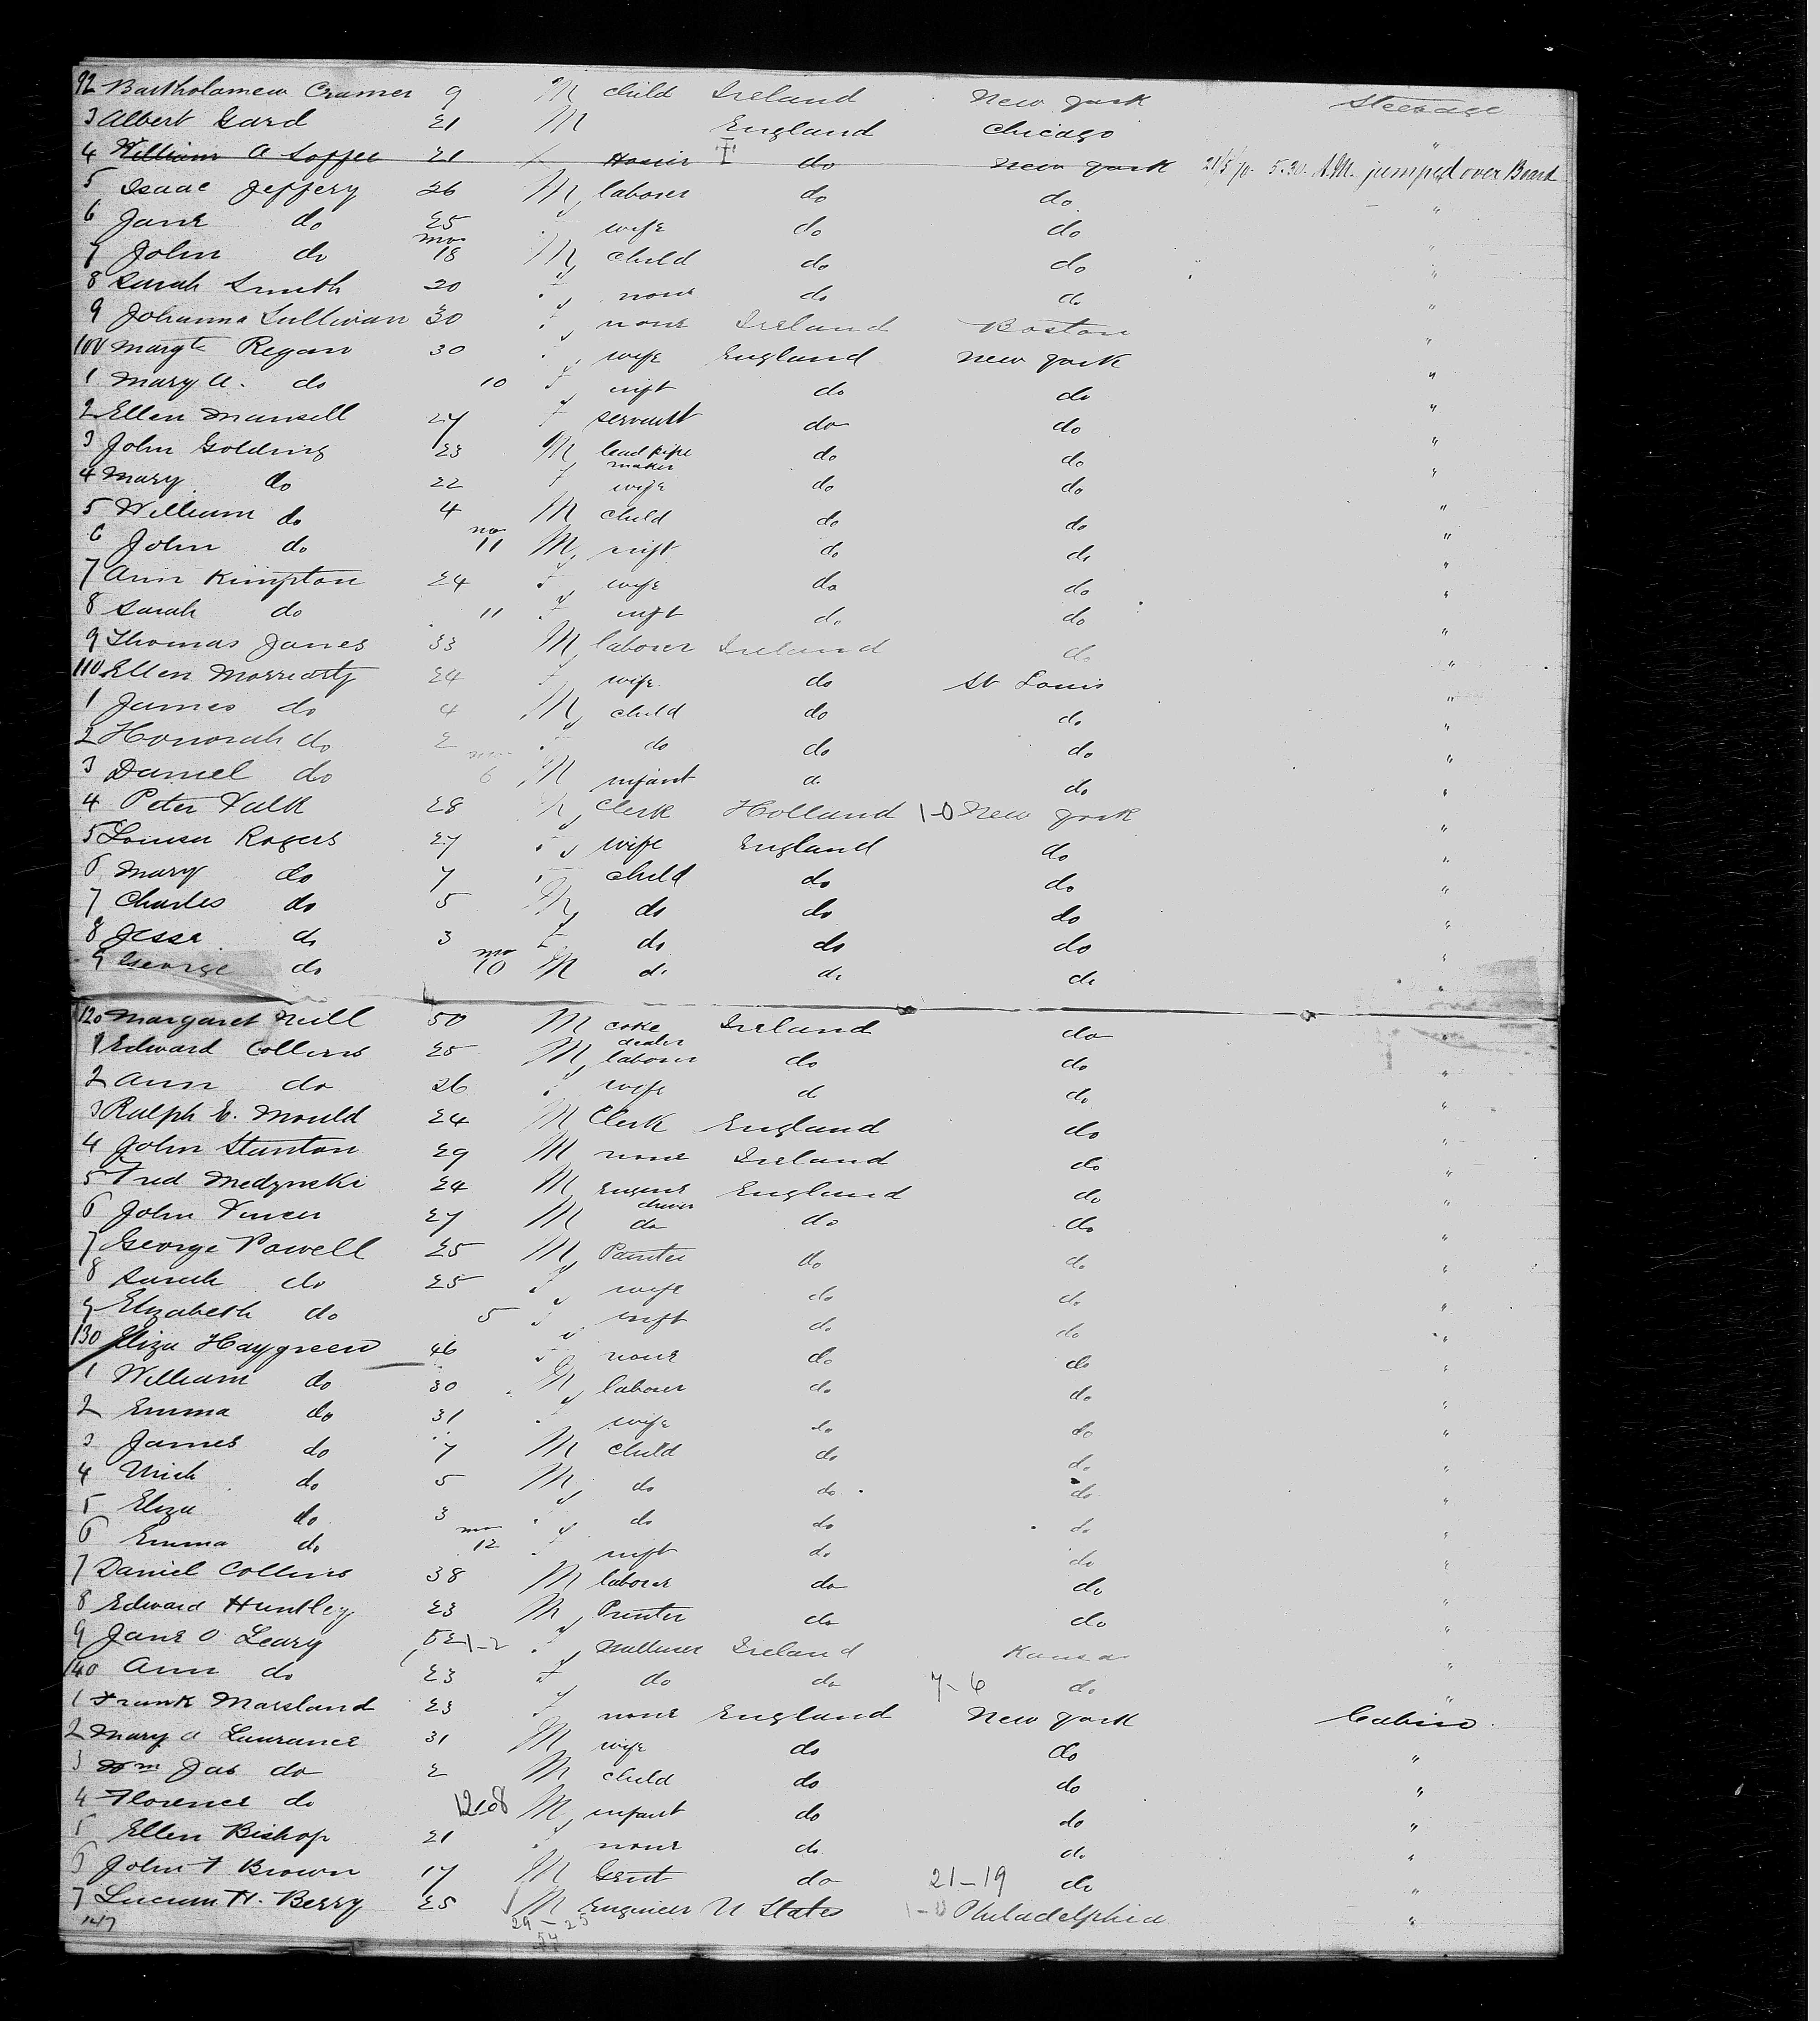 92 Bartholamew Cramer 9 M child Ireland New york Steerage
3 Albert Gard 21 M England Chicago "
4 William A Soffee 21 do New york 21/5/70. 5.30. A.M. jumped over Board
5 Isaac Jeffery 26 M laborer do do "
6 Jane do 25 f wife do do "
7 John do mos 18 M child do do "
8 Sarah Smith 20 f none do do "
9 Johanna Sullivan 30 f none Ireland Boston "
100 Margt Regan 30 f wife England New york "
1 Mary A. do 10 f inft do do "
2 Ellen Mansell 27 f servant do do "
3 John Golding 23 M lead pipe maker do do "
4 Mary do 22 f wife do do "
5 William do 4 M child do do "
6 John do mo 11 M inft do do "
7 Ann Kimpton 24 f wife do do "
8 Sarah do 11 f inft do do "
9 Thomas Janes 33 M laborer Ireland do "
110 Ellen Morriarty 24 f wife do St Louis "
1 James do 4 M child do do "
2 Honorah do 2 f do do do "
3 Daniel do mos 6 M infant do do "
4 Peter Valk 28 M Clerk Holland 1-0 New york "
5 Louisa Rogers 27 f wife England do "
6 Mary do 7 f child do do "
7 Charles do 5 M do do do "
8 Jessa do 3 f do do do "
9 George do mo 10 M do do do "
120 Margaret Neill 50 M coke dealer Ireland do "
1 Edward Collins 25 M laborer do do "
2 Ann do 26 f wife do do "
3 Ralph E. Mould 24 M Clerk England do "
4 John Stanton 29 M none Ireland do "
5 Fred Medynski 24 M Engine driver England do "
6 John 27 M do do do "
7 George Powell 25 M Painter do do "
8 Sarah do 25 f wife do do "
9 Elizabeth do 5 f inft do do "
130 Eliza Haygreen 46 f none do do "
1 William do 30 M laborer do do "
2 Emma do 31 f wife do do "
3 James do 7 M child do do "
4 do 5 M do do do "
5 Eliza do 3 f do do do "
6 Emma do mo 12 f inft do do "
7 Daniel Collins 38 M laborer do do "
8 Edward Huntley 23 M Printer do do "
9 Jane O Leary f milliner Ireland Kansas "
140 Ann do 23 f do do 7-6 do "
1 Frank Marsland 23 f none England New york Cabin
2 Mary A Laurance 31 M wife do do "
3 Wm Jas do 2 M child do do "
4 Florence do M infant do do "
5 Ellen Bishop 21 f none do do "
6 John F Brown 17 M Gent do 21-19 do "
7 H. Berry 25 M Engineer U States 1-0 Philadelphia "
147 29-25
54